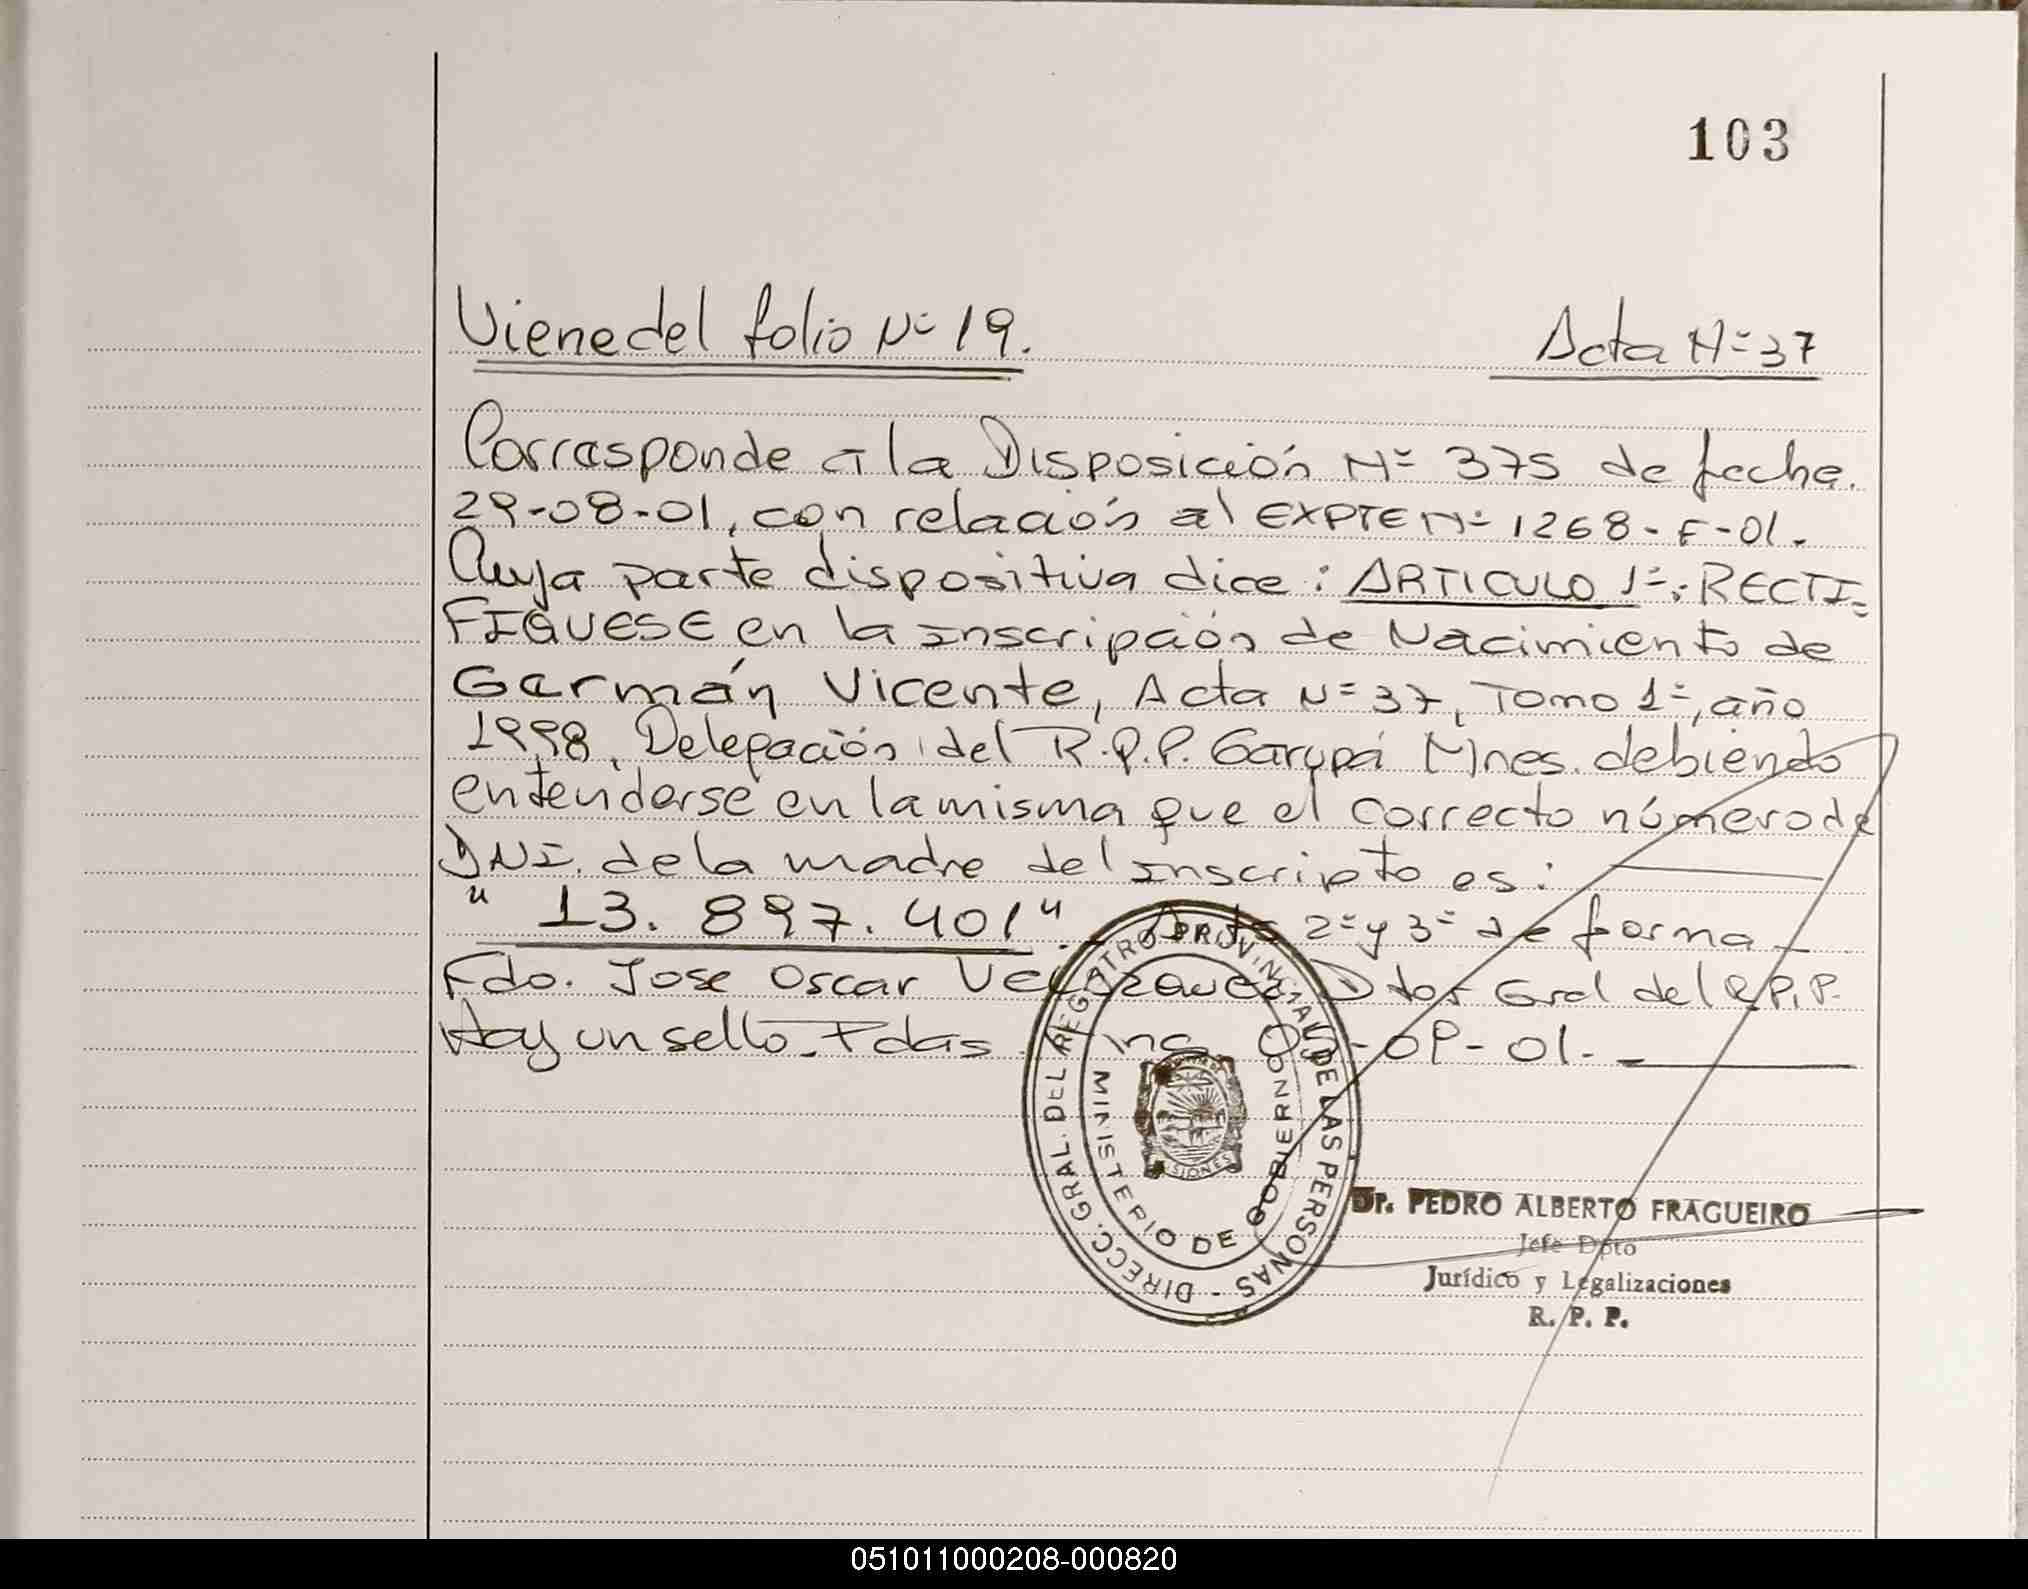 103
Viene del folio Nº 19.
Acta Nº 37
Corresponde a la Disposición Nº 375 de fecha.
29-08-01, con relación al EXPTE Nº 1268-F-01.
Cuya parte dispositiva dice: ARTICULO 1º: RECTI=
FIQUESE en la inscripción de Nacimiento de
Germán Vicente, Acta Nº 37, Tomo 1º, año
1998, Delegación del R.P.P. Garupá Mnes. debiendo
entenderse en la misma que el correcto número de
DNI. de la madre del inscripto es:
"13.897.401". Arts 2º y 3º de forma
Fdo. Jose Oscar Velazquez Dtor Gral del R.P.P.
Hay un sello. Pdas. Mnes 05-09-01.
DIRECC. GRAL. DEL REGISTRO PROVINCIAL DE LAS PERSONAS -
MINISTERIO DE GOBIERNO
MISIONES
Dr. PEDRO ALBERTO FRAGUEIRO
Jefe Dpto
Jurídico y Legalizaciones
R. P. P.
051011000208-000820